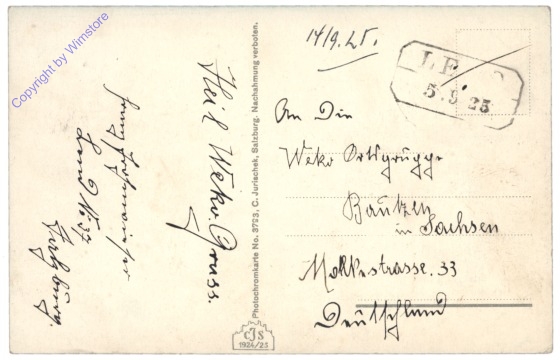 Copyright by Wimstore
14/9.25.
LE
5.9.25
Heil Weko. Gruss
Land No 37
Photochromkarte No. 3793, C. Jurischek, Salzburg. Nachahmung verboten.
An Die
Weko Ortsgruppe
Bautzen
in Sachsen
Moltkestrasse. 33
Deutschland
cJs
1924/25